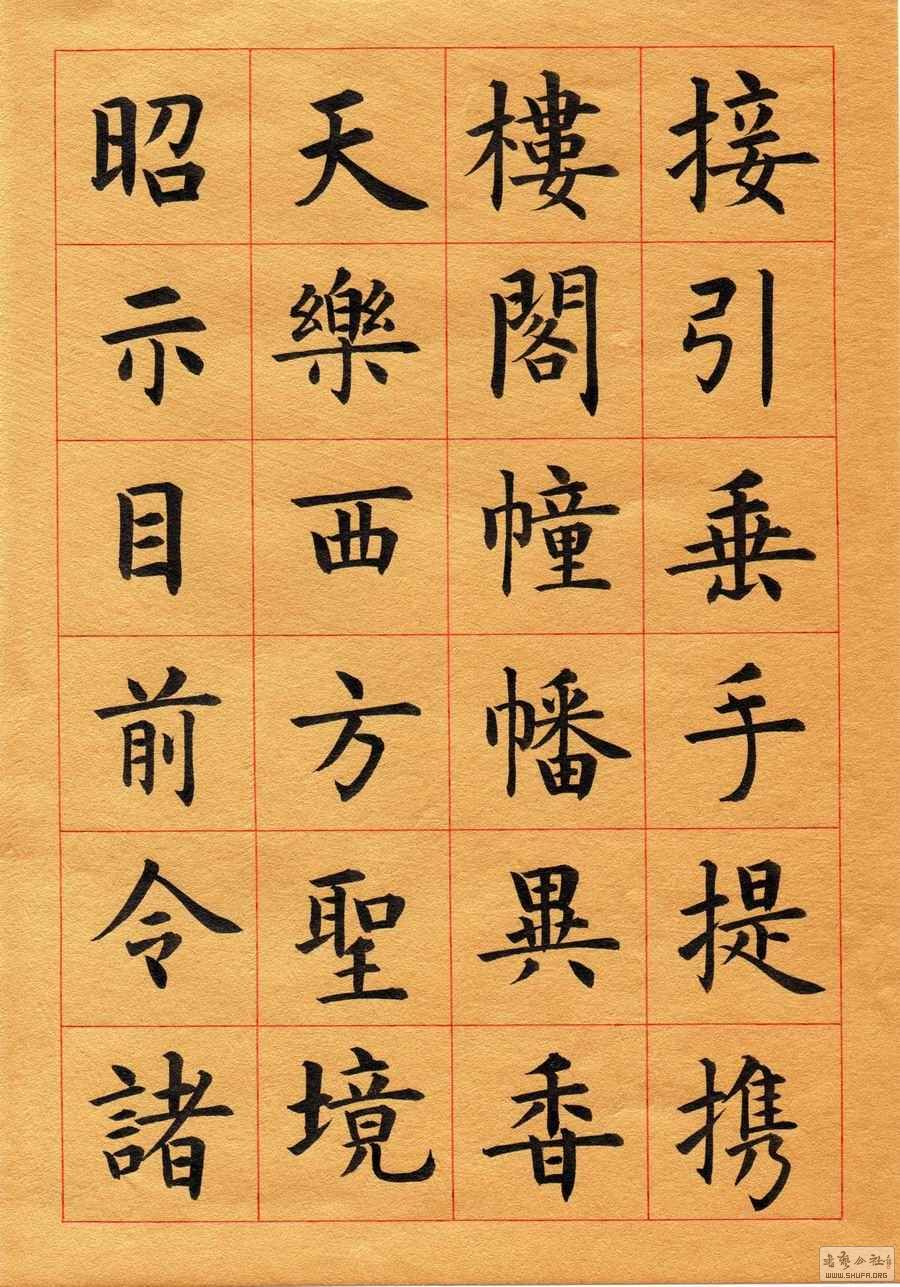 接引垂手提携
樓閣幢幡異香
天樂西方聖境
昭示目前令諸
WWW.SHUFA.ORG